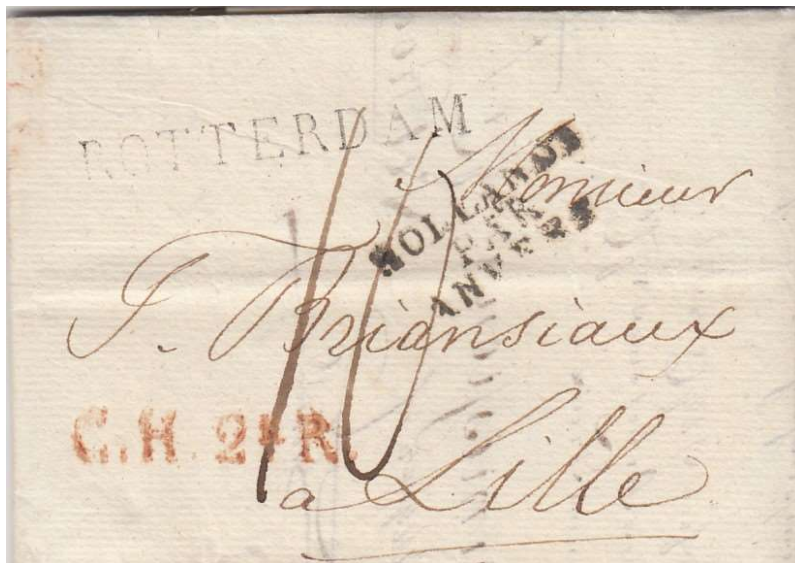 ROTTERDAM
HOLLANDE
PAR
ANVERS
Monsieur
J. Briansiaux
C.H. 2e R.
à Lille